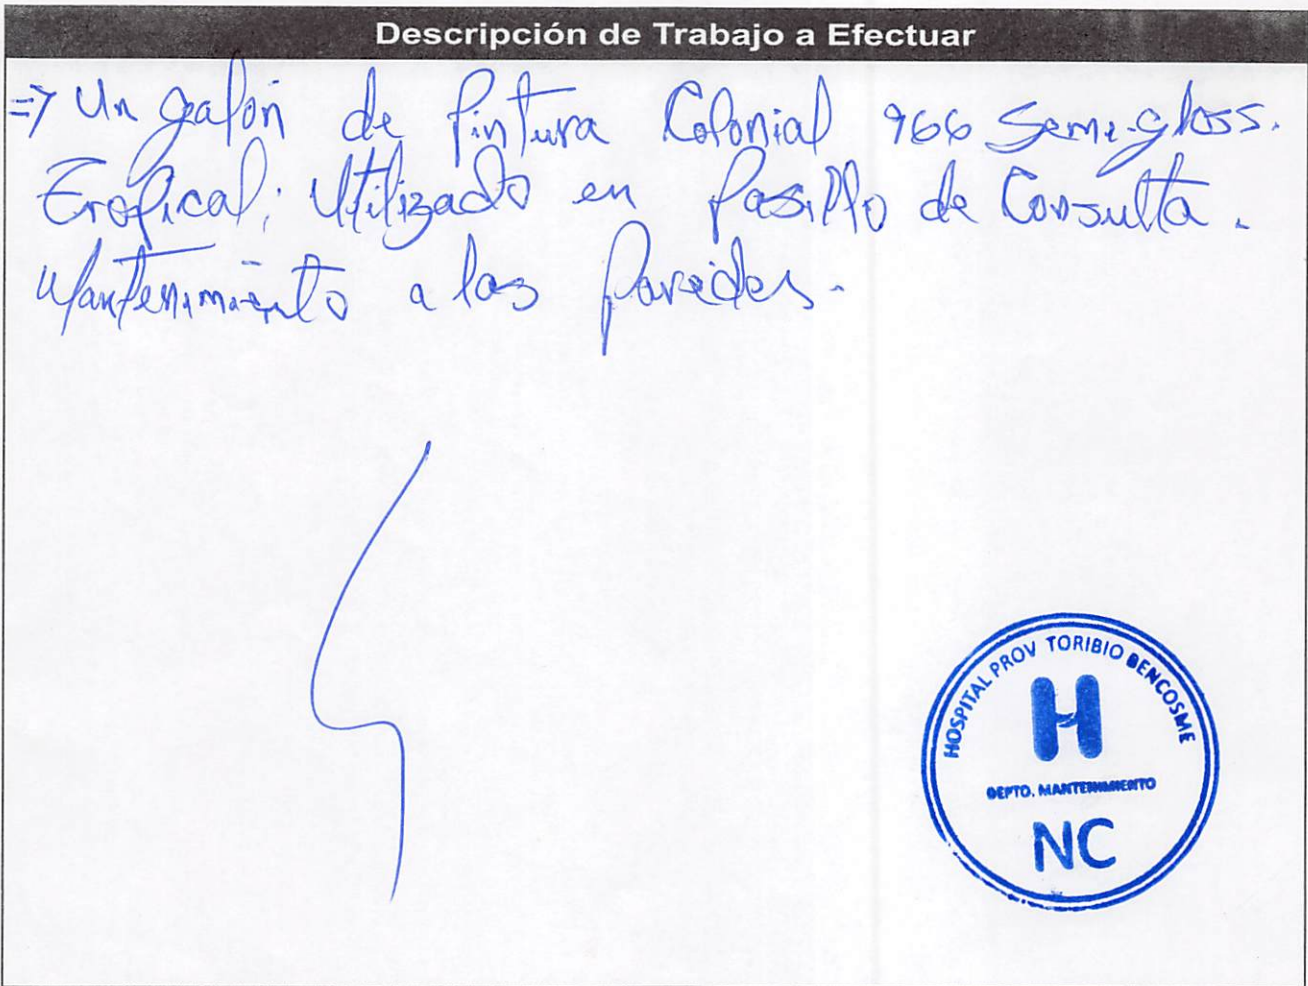 Descripción de Trabajo a Efectuar
=> Un galón de pintura Colonial 966 Semi-gloss.
Tropical; Utilizado en pasillo de Consulta.
Mantenimiento a las paredes.
HOSPITAL PROV TORIBIO BENCOSME
H
DEPTO. MANTENIMIENTO
NC